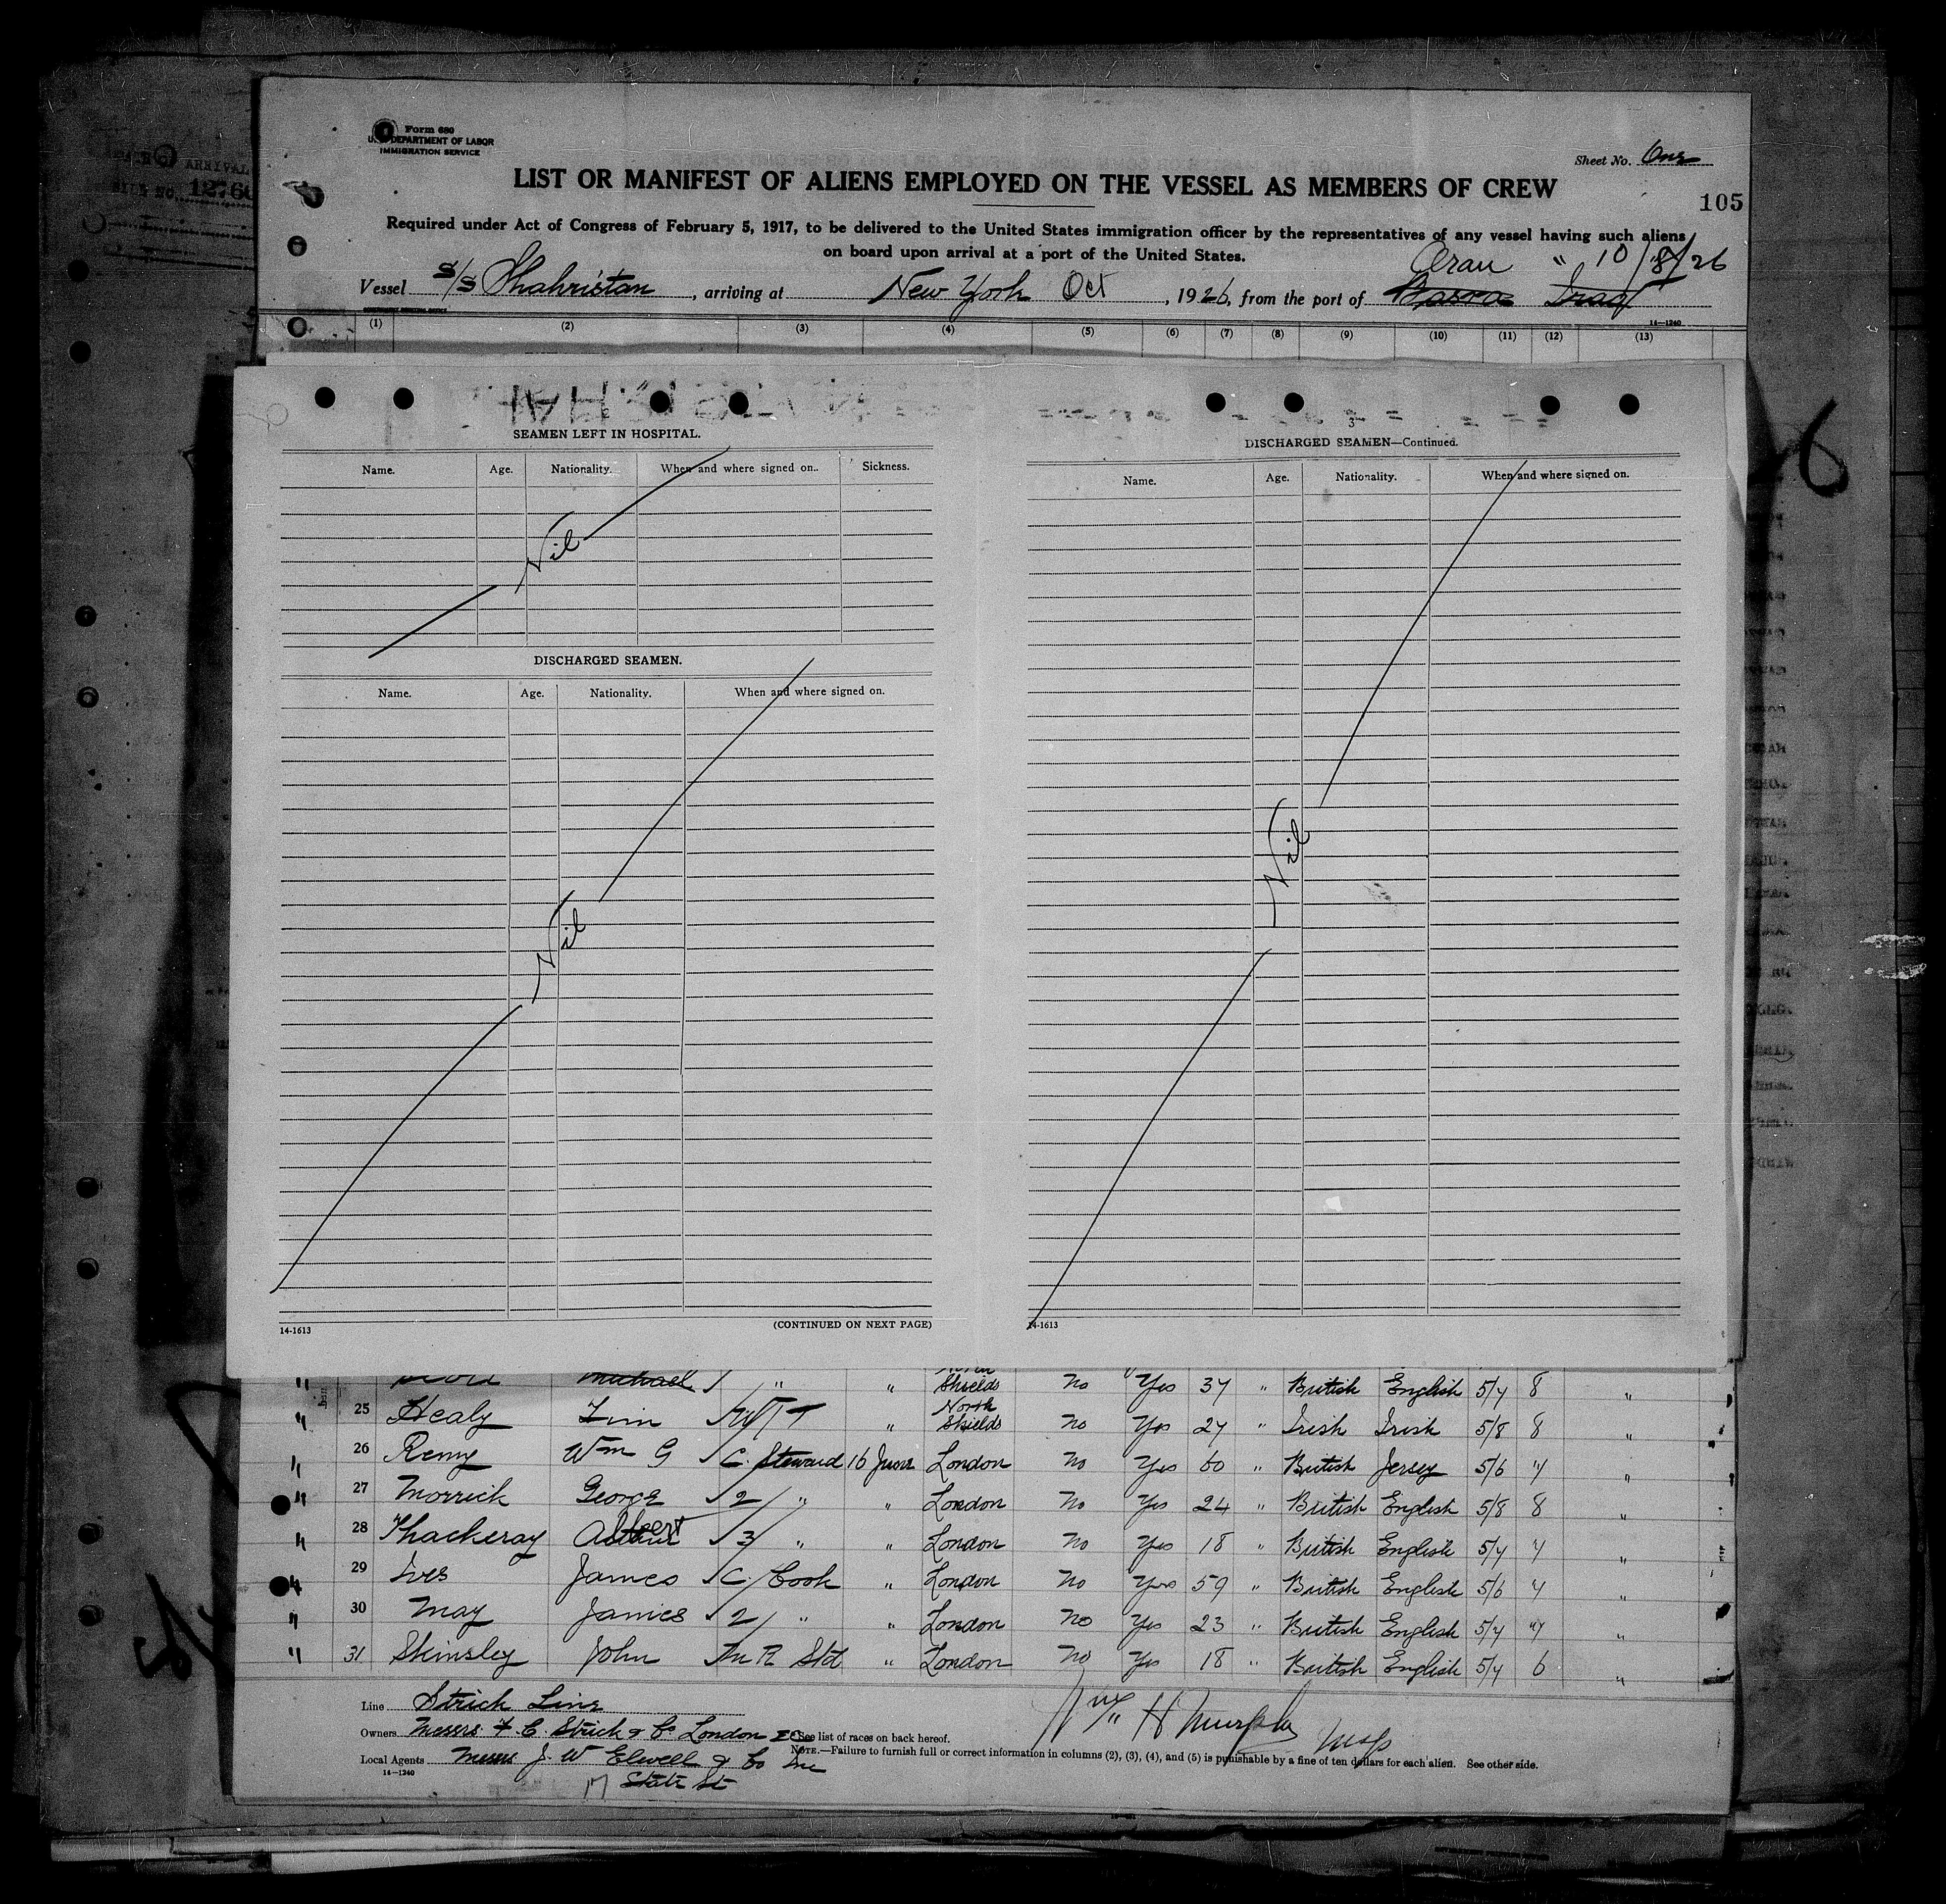 Form 680
U. S. DEPARTMENT OF LABOR
IMMIGRATION SERVICE
ARRIVAL
FILE NO. 12760
Sheet No. One
LIST OR MANIFEST OF ALIENS EMPLOYED ON THE VESSEL AS MEMBERS OF CREW
105
Required under Act of Congress of February 5, 1917, to be delivered to the United States immigration officer by the representatives of any vessel having such aliens
on board upon arrival at a port of the United States.
Oran " 10/8/26
Vessel S/S Shahristan, arriving at New York Oct, 1926, from the port of Basra Iraq
14-1240
(1) (2) (3) (4) (5) (6) (7) (8) (9) (10) (11) (12) (13)
SEAMEN LEFT IN HOSPITAL.
Name. Age. Nationality. When and where signed on. Sickness.
Nil
DISCHARGED SEAMEN.
Name. Age. Nationality. When and where signed on.
Nil
14-1613 (CONTINUED ON NEXT PAGE)
3
DISCHARGED SEAMEN—Continued.
Name. Age. Nationality. When and where signed on.
Nil
14-1613
Michael " " Shields No Yes 37 " British English 5/7 8 "
" 25 Healy Tim " North Shields No Yes 27 " Irish Irish 5/8 8 "
" 26 Remy Wm G C. Steward 16 June London No Yes 60 " British Jersey 5/6 "
" 27 Morrick George 2/ " " London No Yes 24 " British English 5/8 8 "
" 28 Thackeray Albert 3/ " " London No Yes 18 " British English 5/7 "
" 29 Ives James C/Cook " London No Yes 59 " British English 5/6 "
" 30 May James 2/ " " London No Yes 23 " British English 5/7 "
" 31 Skinsley John M R Std " London No Yes 18 " British English 5/7 6 "
Line Strick Line
Owners Messrs F. C. Strick & Co London E C
Local Agents Messrs J. W Elwell & Co Inc
17 State St
14-1240
See list of races on back hereof.
NOTE.—Failure to furnish full or correct information in columns (2), (3), (4), and (5) is punishable by a fine of ten dollars for each alien. See other side.
Wm H Murphy